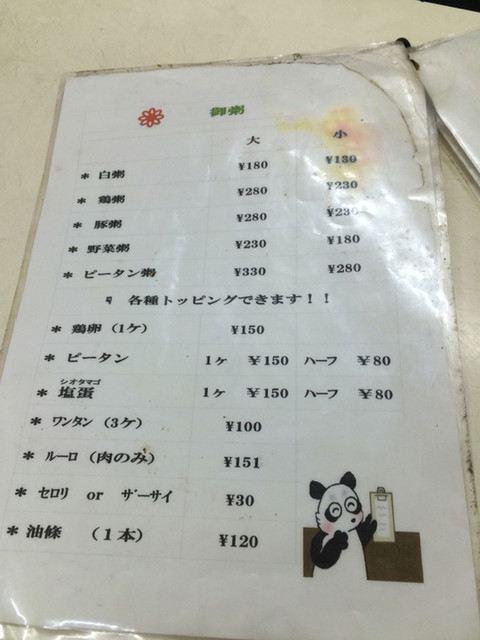 御粥
大 小
* 白粥 ¥180 ¥130
* 鶏粥 ¥280 ¥230
* 豚粥 ¥280 ¥230
* 野菜粥 ¥230 ¥180
* ピータン粥 ¥330 ¥280
☟ 各種トッピングできます!!
* 鶏卵(1ヶ) ¥150
* ピータン 1ケ ¥150 ハーフ ¥80
シオタマゴ
* 塩蛋 1ケ ¥150 ハーフ ¥80
* ワンタン(3ケ) ¥100
* ルーロ(肉のみ) ¥151
* セロリ or ザーサイ ¥30
* 油條 (1本) ¥120